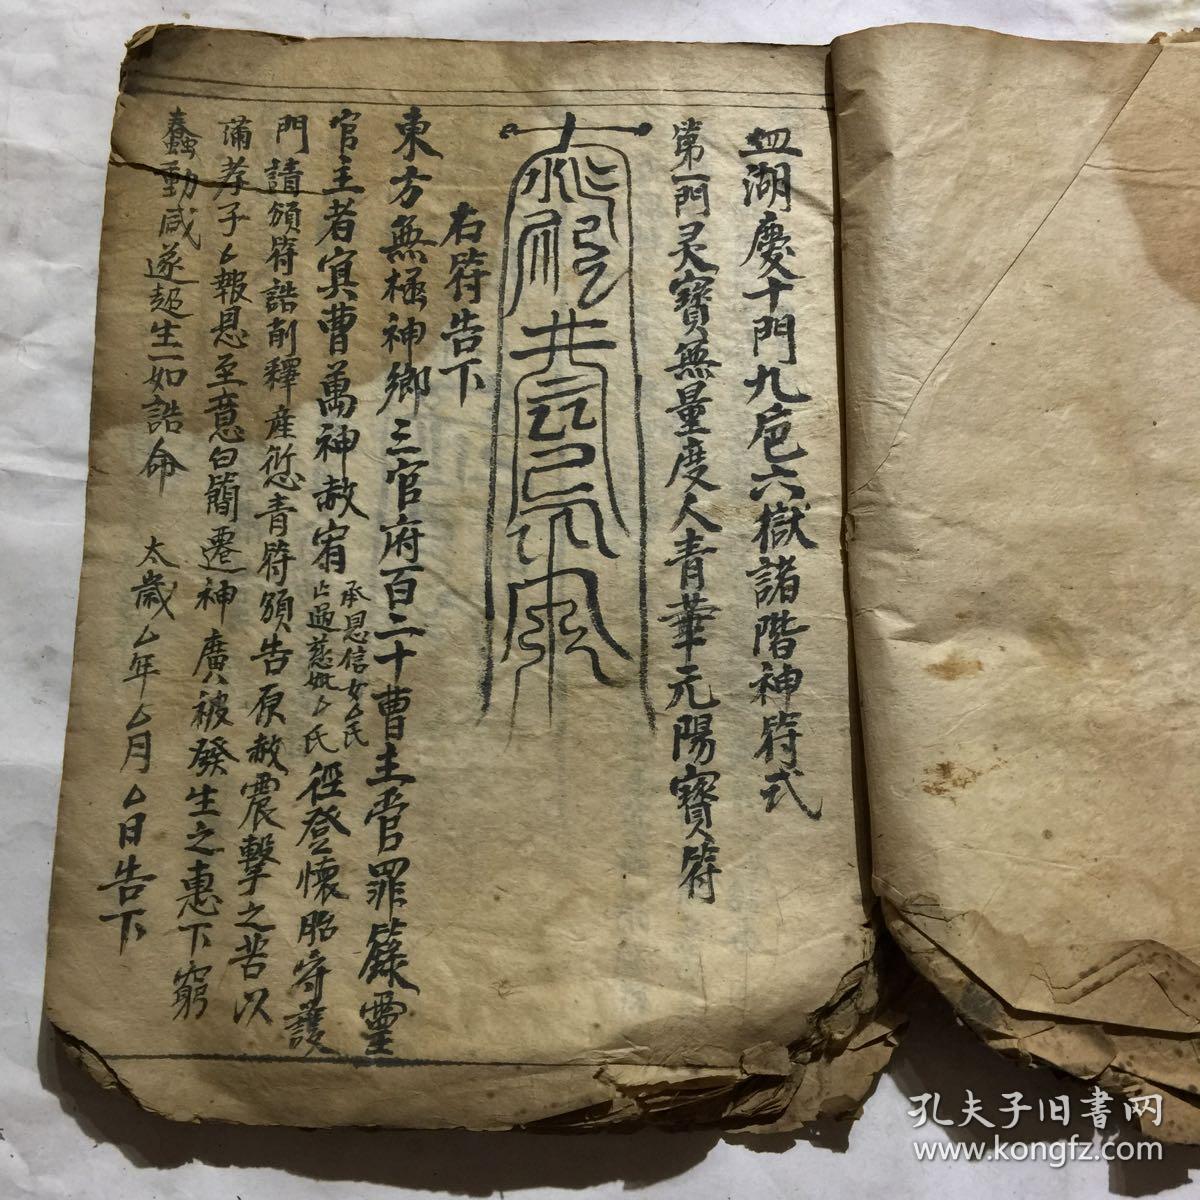 血湖慶十門九卮六獄諸階神符式
第一門灵寶無量度人青華元陽寶符
右符告下
東方無極神鄉三官府百二十曹主管罪籙靈
官主者冥曹萬神赦宥
承恩信女厶氏
亡過慈妣厶氏
徑登懷胎守護
門請頒符誥削釋產愆青符頒告原赦震擊之苦以
蒲孝子厶報恩至意白簡遷神廣被發生之惠下窮
蠢動咸遂超生一如誥命
太歲厶年厶月厶日告下
孔夫子旧书网
www.kongfz.com